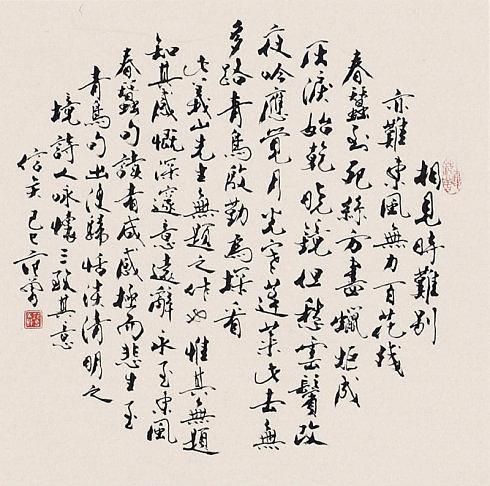 相見時難別
亦難東風無力百花殘
春蠶到死絲方盡蠟炬成
灰淚始乾曉鏡但愁雲鬢改
夜吟應覺月光寒蓬萊此去無
多路青鳥殷勤為探看
此義山先生無題之作也惟其無題
知其感慨深邃意遠辭永至東風
春蠶句讀者咸感極而悲生至
青鳥句出使歸恬淡清明之
境詩人咏懷三致其意
信矣己巳范曾